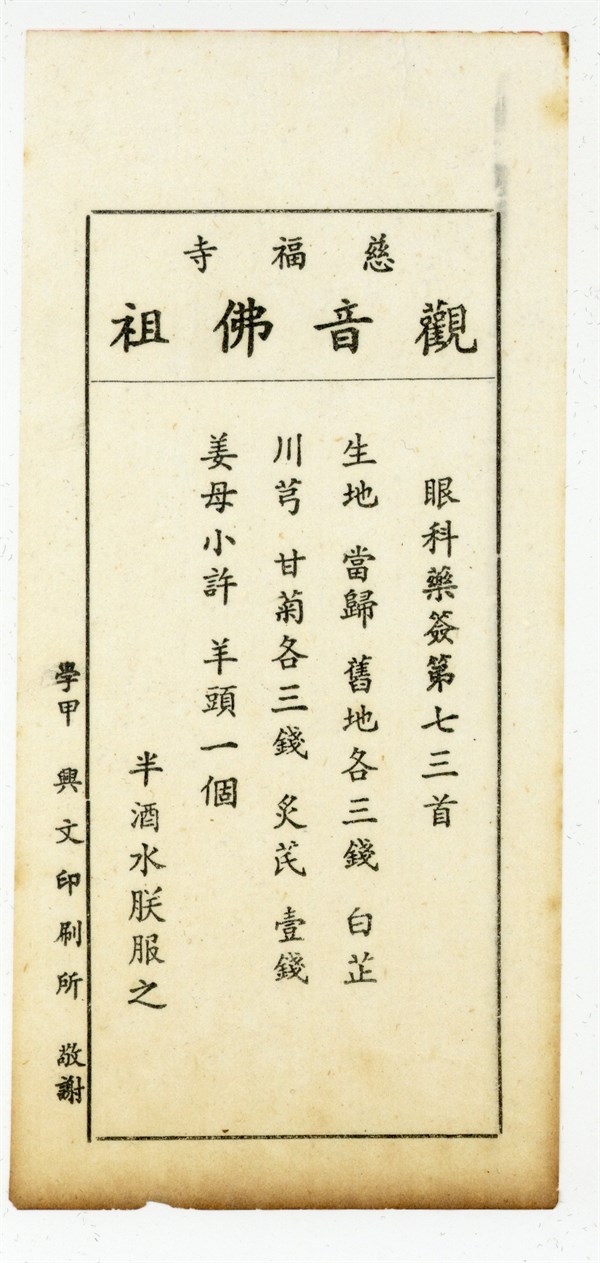 慈福寺
觀音佛祖
眼科藥簽第七三首
生地 當歸 舊地各三錢 白芷
川芎 甘菊各三錢 炙芪 壹錢
姜母小許 羊頭一個
半酒水朕服之
學甲 興文印刷所 敬謝